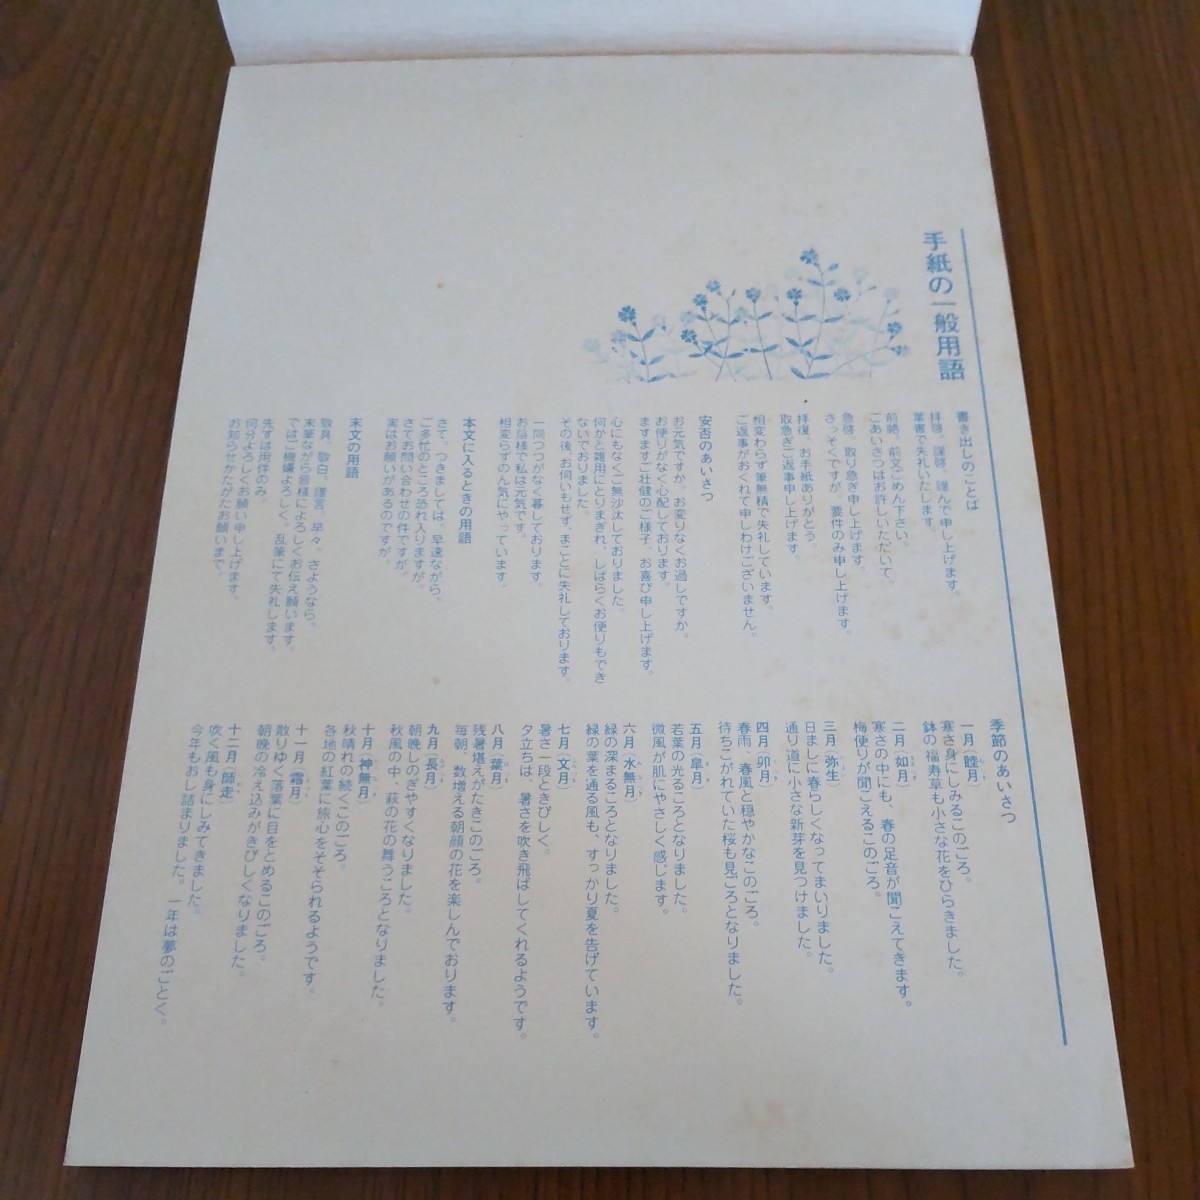 手紙の一般用語
書き出しのことば
拝啓、謹啓、謹んで申し上げます。
葉書で失礼いたします。
前略、前文ごめん下さい。
ごあいさつはお許しいただいて、
急啓、取り急ぎ申し上げます。
さっそくですが、要件のみ申し上げます。
拝復、お手紙ありがとう。
取急ぎご返事申し上げます。
相変わらず筆無精で失礼しています。
ご返事がおくれて申しわけございません。
安否のあいさつ
お元気ですか。お変りなくお過しですか。
お便りがなく心配しております。
ますますご壮健のご様子、お喜び申し上げます。
心にもなくご無沙汰しておりました。
何かと雑用にとりまぎれ、しばらくお便りもでき
ないでおりました。
その後、お伺いもせず、まことに失礼しております。
一同つつがなく暮しております。
お蔭様で私は元気です。
相変らずのん気にやっています。
本文に入るときの用語
さて、つきましては、早速ながら、
ご多忙のところ恐れ入りますが、
さてお問い合わせの件ですが、
実はお願いがあるのですが、
末文の用語
敬具、敬白、謹言、早々、さようなら。
末筆ながら皆様によろしくお伝え願います。
ではご機嫌よろしく。乱筆にて失礼します。
先ずは用件のみ
何分よろしくお願い申し上げます。
お知らせかたがたお願いまで。
季節のあいさつ
一月(睦月)
寒さ身にしみるこのごろ。
鉢の福寿草も小さな花をひらきました。
二月(如月)
寒さの中にも、春の足音が聞こえてきます。
梅便りが聞こえるこのごろ。
三月(弥生)
日ましに春らしくなってまいりました。
通り道に小さな新芽を見つけました。
四月(卯月)
春雨、春風と穏やかなこのごろ。
待ちこがれていた桜も見ごろとなりました。
五月(皐月)
若葉の光るころとなりました。
微風が肌にやさしく感じます。
六月(水無月)
緑の深まるころとなりました。
緑の葉を通る風も、すっかり夏を告げています。
七月(文月)
暑さ一段ときびしく。
夕立ちは、暑さを吹き飛ばしてくれるようです。
八月(葉月)
残暑堪えがたきこのごろ。
毎朝、数増える朝顔の花を楽しんでおります。
九月(長月)
朝晩しのぎやすくなりました。
秋風の中、萩の花の舞うころとなりました。
十月(神無月)
秋晴れの続くこのごろ。
各地の紅葉に旅心をそそられるようです。
十一月(霜月)
散りゆく落葉に目をとめるこのごろ。
朝晩の冷え込みがきびしくなりました。
十二月(師走)
吹く風も身にしみてきました。
今年もおし詰まりました。一年は夢のごとく。